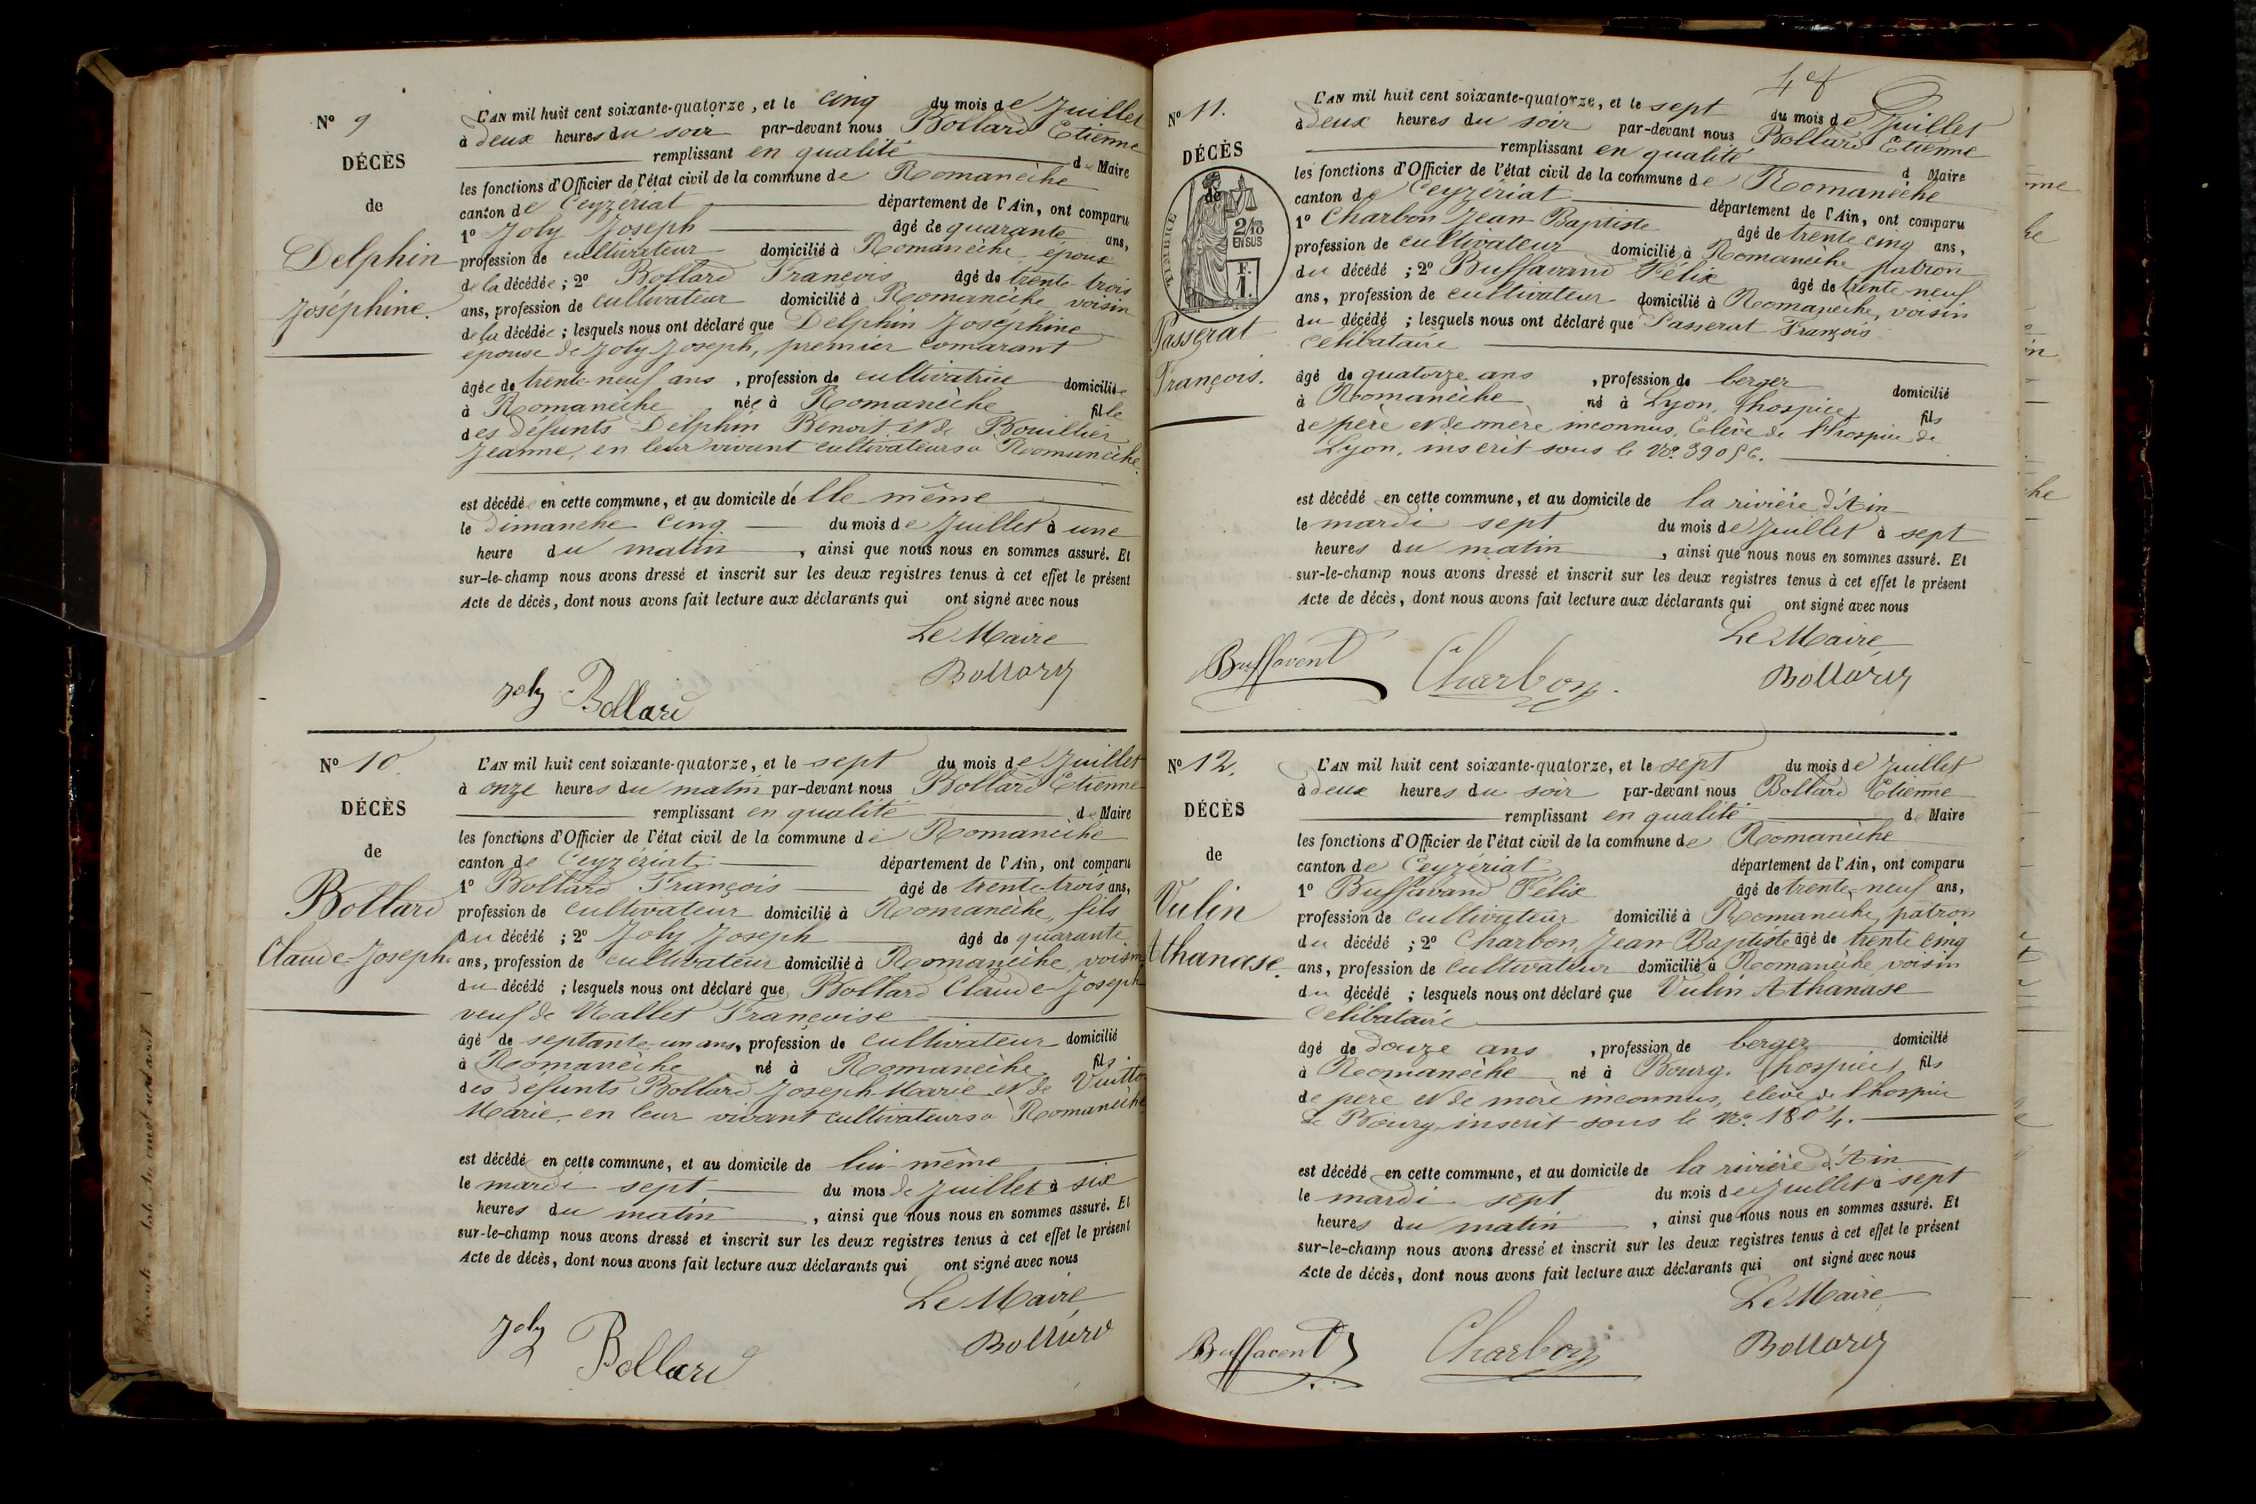 Nº 9
DÉCÈS
de
Delphin
Joséphine.
L'AN mil huit cent soixante-quatorze, et le cinq du mois de Juillet
à deux heures du soir par-devant nous Bollard Etienne
remplissant en qualité de Maire
les fonctions d'Officier de l'état civil de la commune de Romanèche
canton de Ceyzériat département de l'Ain, ont comparu
1º Joly Joseph âgé de quarante ans,
profession de cultivateur domicilié à Romanèche, époux
de la décédée ; 2º Bollard François âgé de trente trois
ans, profession de cultivateur domicilié à Romanèche, voisin
de la décédée ; lesquels nous ont déclaré que Delphin Joséphine
épouse de Joly Joseph, premier comarant
âgée de trente-neuf ans, profession de cultivatrice domiciliée
à Romanèche née à Romanèche fille
des défunts Delphin Benoit et de Bouillier
Jeanne, en leur vivant cultivateurs à Romanèche.
est décédé en cette commune, et au domicile d'elle même
le dimanche cinq du mois de Juillet à une
heure du matin, ainsi que nous nous en sommes assuré. Et
sur-le-champ nous avons dressé et inscrit sur les deux registres tenus à cet effet le présent
Acte de décès, dont nous avons fait lecture aux déclarants qui ont signé avec nous
Le Maire
Joly Bollard Bollard
Nº 10.
DÉCÈS
de
Bollard
Claude-Joseph.
L'AN mil huit cent soixante-quatorze, et le sept du mois de Juillet
à onze heures du matin par-devant nous Bollard Etienne
remplissant en qualité de Maire
les fonctions d'Officier de l'état civil de la commune de Romanèche
canton de Ceyzériat département de l'Ain, ont comparu
1º Bollard François âgé de trente-trois ans,
profession de cultivateur domicilié à Romanèche, fils
du décédé ; 2º Joly Joseph âgé de quarante
ans, profession de cultivateur domicilié à Romanèche, voisin
du décédé ; lesquels nous ont déclaré que Bollard Claude-Joseph
veuf de Mallet Françoise
âgé de septante-un ans, profession de cultivateur domicilié
à Romanèche né à Romanèche fils
des défunts Bollard Joseph-Marie et de
Marie, en leur vivant cultivateurs à Romanèche
est décédé en cette commune, et au domicile de lui-même
le mardi sept du mois de Juillet à six
heures du matin, ainsi que nous nous en sommes assuré. Et
sur-le-champ nous avons dressé et inscrit sur les deux registres tenus à cet effet le présent
Acte de décès, dont nous avons fait lecture aux déclarants qui ont signé avec nous
Le Maire
Joly Bollard Bollard
Nº 11.
DÉCÈS
de
TIMBRE
2/10
EN SUS
F.
1
Passerat
François.
L'AN mil huit cent soixante-quatorze, et le sept du mois de Juillet
à deux heures du soir par-devant nous Bollard Etienne
remplissant en qualité d Maire
les fonctions d'Officier de l'état civil de la commune de Romanèche
canton de Ceyzériat département de l'Ain, ont comparu
1º Charbon Jean-Baptiste âgé de trente cinq ans,
profession de cultivateur domicilié à Romanèche patron
du décédé ; 2º Buffavand Félix âgé de trente-neuf
ans, profession de cultivateur domicilié à Romanèche, voisin
du décédé ; lesquels nous ont déclaré que Passerat François
célibataire
âgé de quatorze ans, profession de berger domicilié
à Romanèche né à Lyon, (hospice) fils
de père et de mère inconnus, Elève de l'hospice de
Lyon, inscrit sous le Nº 39056.
est décédé en cette commune, et au domicile de la rivière d'Ain
le mardi sept du mois de Juillet à sept
heures du matin, ainsi que nous nous en sommes assuré. Et
sur-le-champ nous avons dressé et inscrit sur les deux registres tenus à cet effet le présent
Acte de décès, dont nous avons fait lecture aux déclarants qui ont signé avec nous
Le Maire
Buffavent Charbon. Bollard
Nº 12.
DÉCÈS
de
Vulin
Athanase.
L'AN mil huit cent soixante-quatorze, et le sept du mois de Juillet
à deux heures du soir par-devant nous Bollard Etienne
remplissant en qualité de Maire
les fonctions d'Officier de l'état civil de la commune de Romanèche
canton de Ceyzériat département de l'Ain, ont comparu
1º Buffavand Félix âgé de trente-neuf ans,
profession de cultivateur domicilié à Romanèche, patron
du décédé ; 2º Charbon, Jean-Baptiste âgé de trente cinq
ans, profession de cultivateur domicilié à Romanèche, voisin
du décédé ; lesquels nous ont déclaré que Vulin Athanase
célibataire
âgé de douze ans, profession de berger domicilié
à Romanèche né à Bourg. (hospice) fils
de père et de mère inconnus, élève de l'hospice
de Bourg inscrit sous le Nº 1804.
est décédé en cette commune, et au domicile de la rivière d'Ain
le mardi sept du mois de Juillet à sept
heures du matin, ainsi que nous nous en sommes assuré. Et
sur-le-champ nous avons dressé et inscrit sur les deux registres tenus à cet effet le présent
Acte de décès, dont nous avons fait lecture aux déclarants qui ont signé avec nous
Le Maire
Buffavent Charbon Bollard